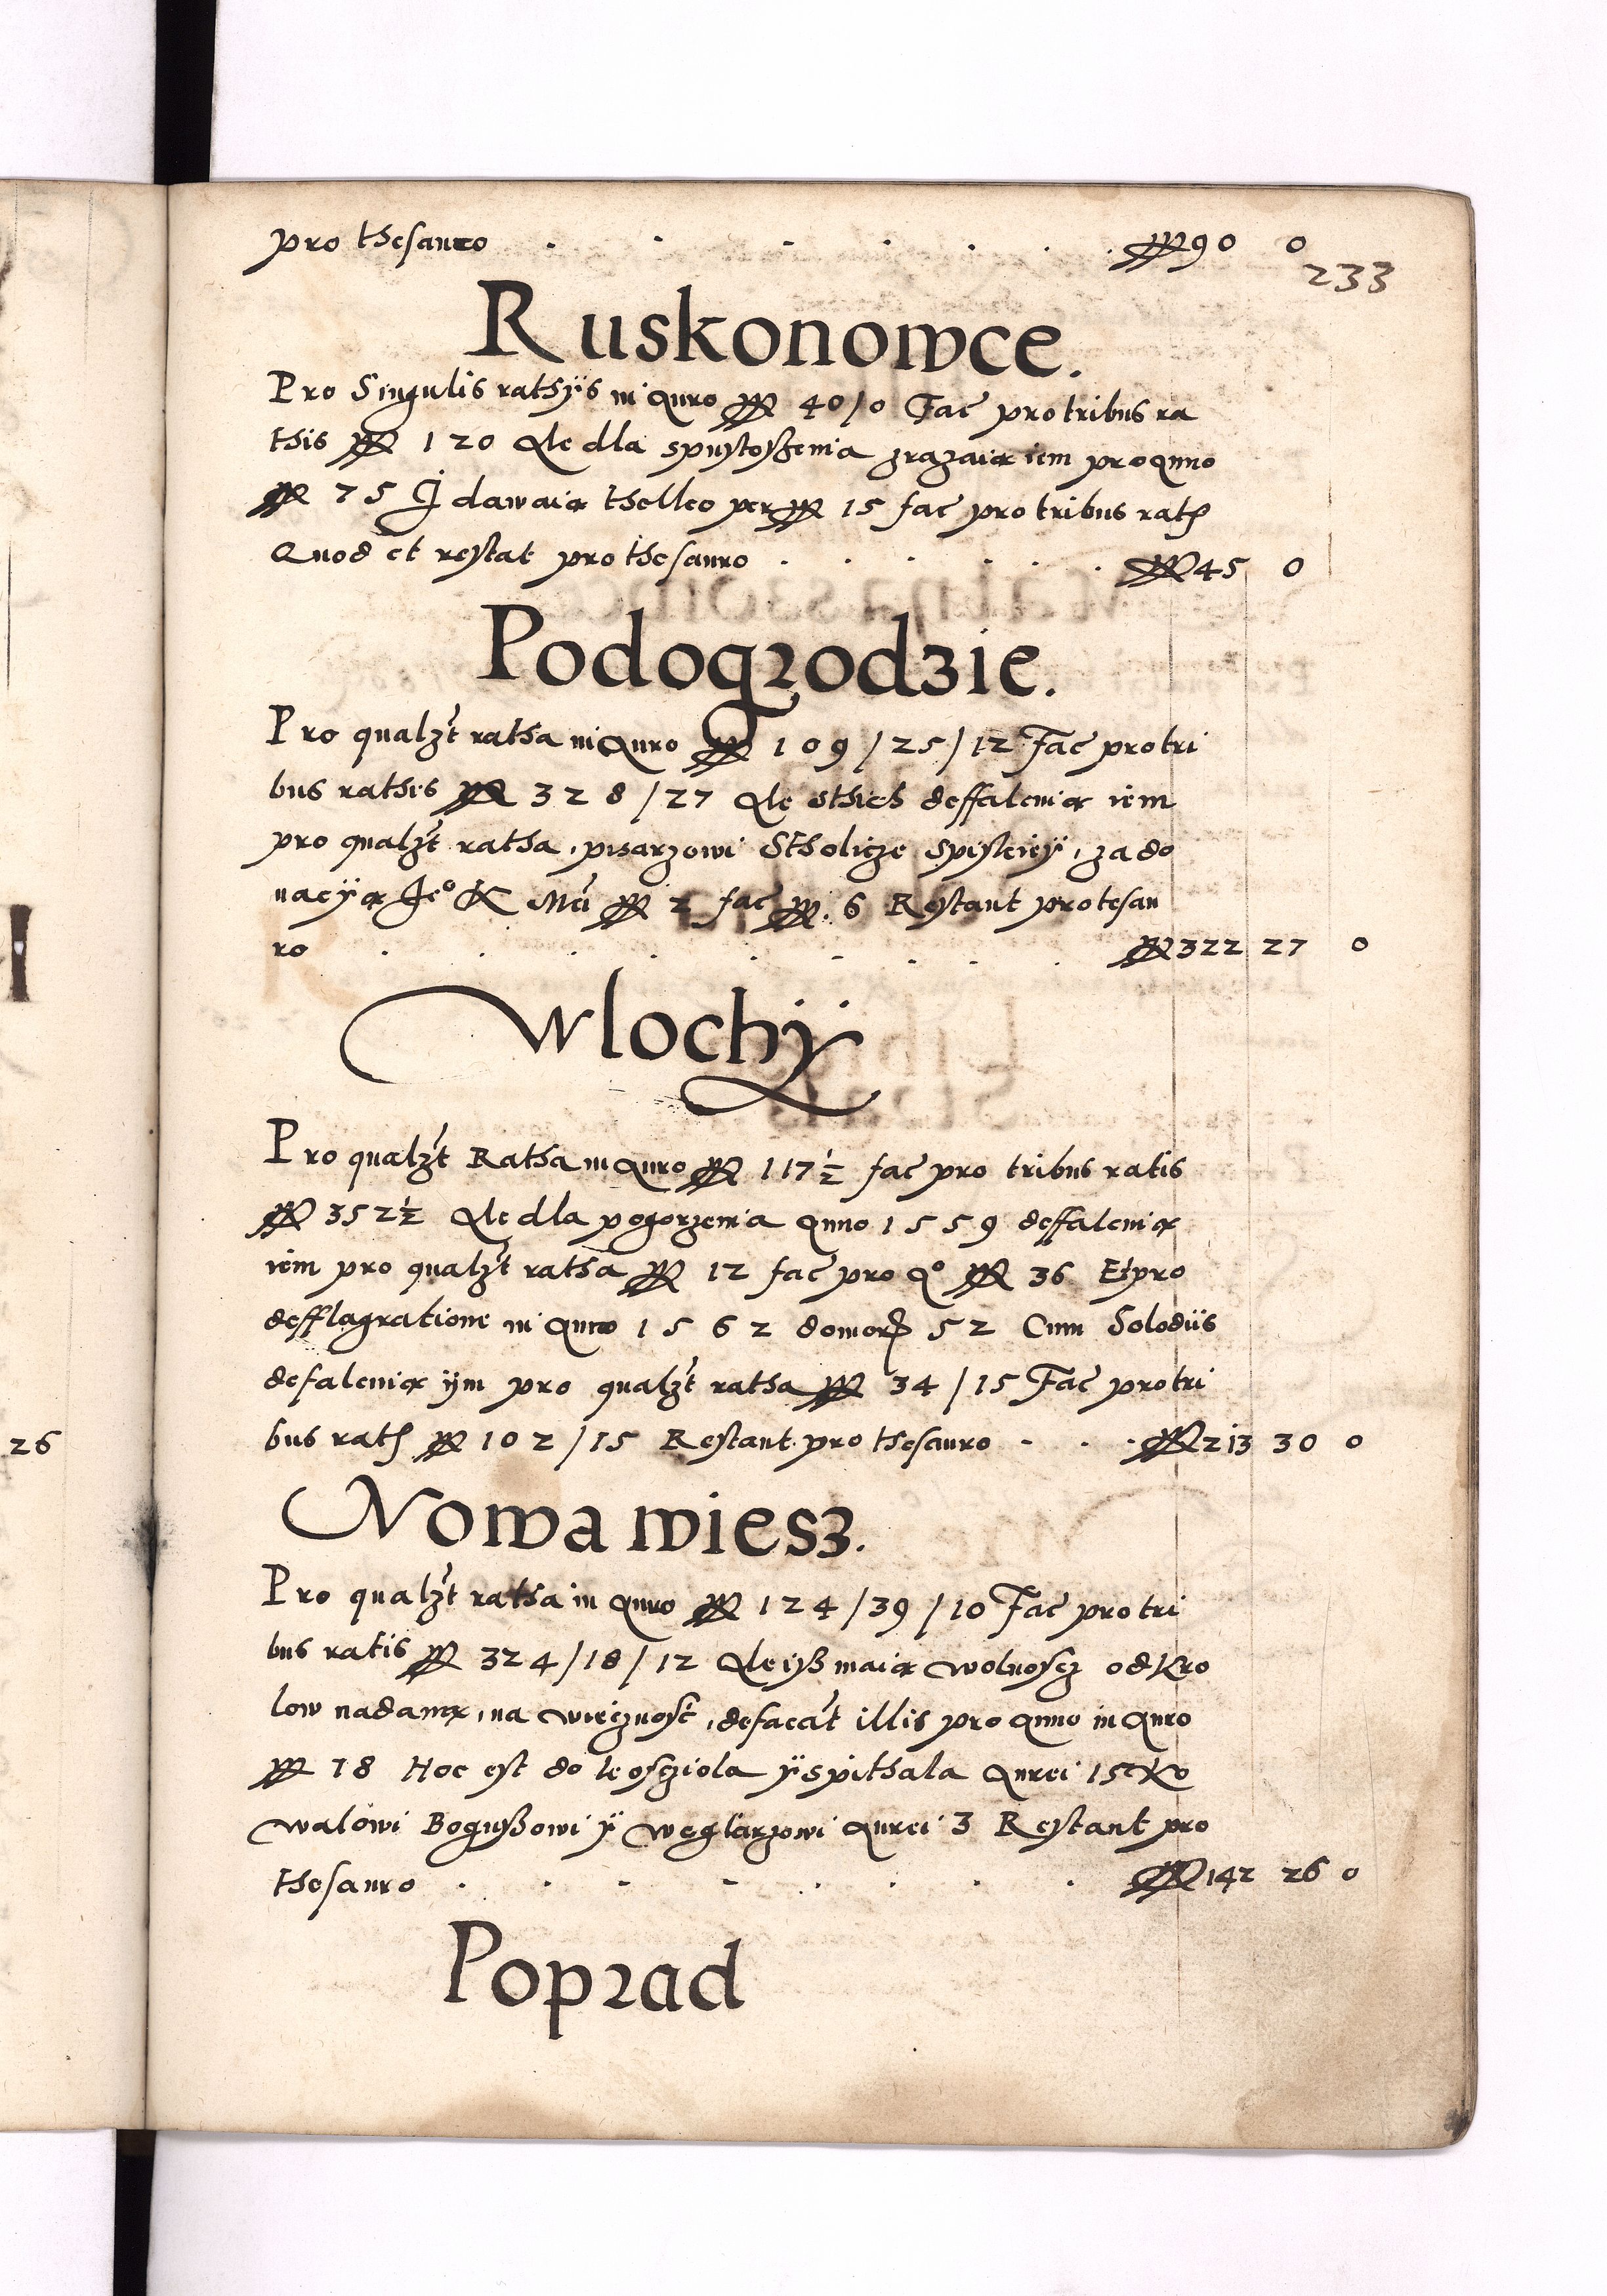 pro thesauro . . . . . . ff 90 0
233
Ruskonowce.
Pro Singulis rathÿs in Auro ff 40/0 Fac pro tribus ra
this ff 120 Ale dla spustoszenia zrazaią iem pro Anno
ff 75 I dawaią thelko per ff 15 fac pro tribus rath
Quod et restat pro thesauro . . . . . ff 45 0
Podogrodzie.
Pro qualzt ratha in Auro ff 109/25/12 Fac pro tri
bus rathes ff 328/27 Ale sthich deffalcuią iem
pro qualzt ratha, pisarzowi Stholicze Spiskieÿ, za do
nacÿą Je° K Mci ff 2 fac ff. 6 Restant pro tesau
ro . . . . . . . . . ff 322 27 0
Wlochÿ
Pro qualzt Ratha in Auro ff 117½ fac pro tribus ratis
ff 352½ Ale dla pogorzenia Anno 1559 deffalcuią
iem pro qualzt ratha ff 12 fac pro A° ff 36 Et pro
defflagratione in Anno 1562 domorum 52 Cum Solodiis
defalcuią ÿm pro qualzt ratha ff 34/15 Fac pro tri
bus rath ff 102/15 Restant pro thesauro . . . ff 213 30 0
26
Nowa wiesz.
Pro qualzt ratha in Auro ff 124/39/10 Fac pro tri
bus ratis ff 324/18/12 Ale isz maią wolnoscz od Kro
low nadaną, na wiecznosc, defacat illis pro Anno in Auro
ff 18 Hoc est do kosciola ÿ spithala Aurei 15 Ko
walowi Boguszowi ÿ Węglarzowi Aurei 3 Restant pro
thesauro . . . . . . . . ff 142 26 0
Poprad